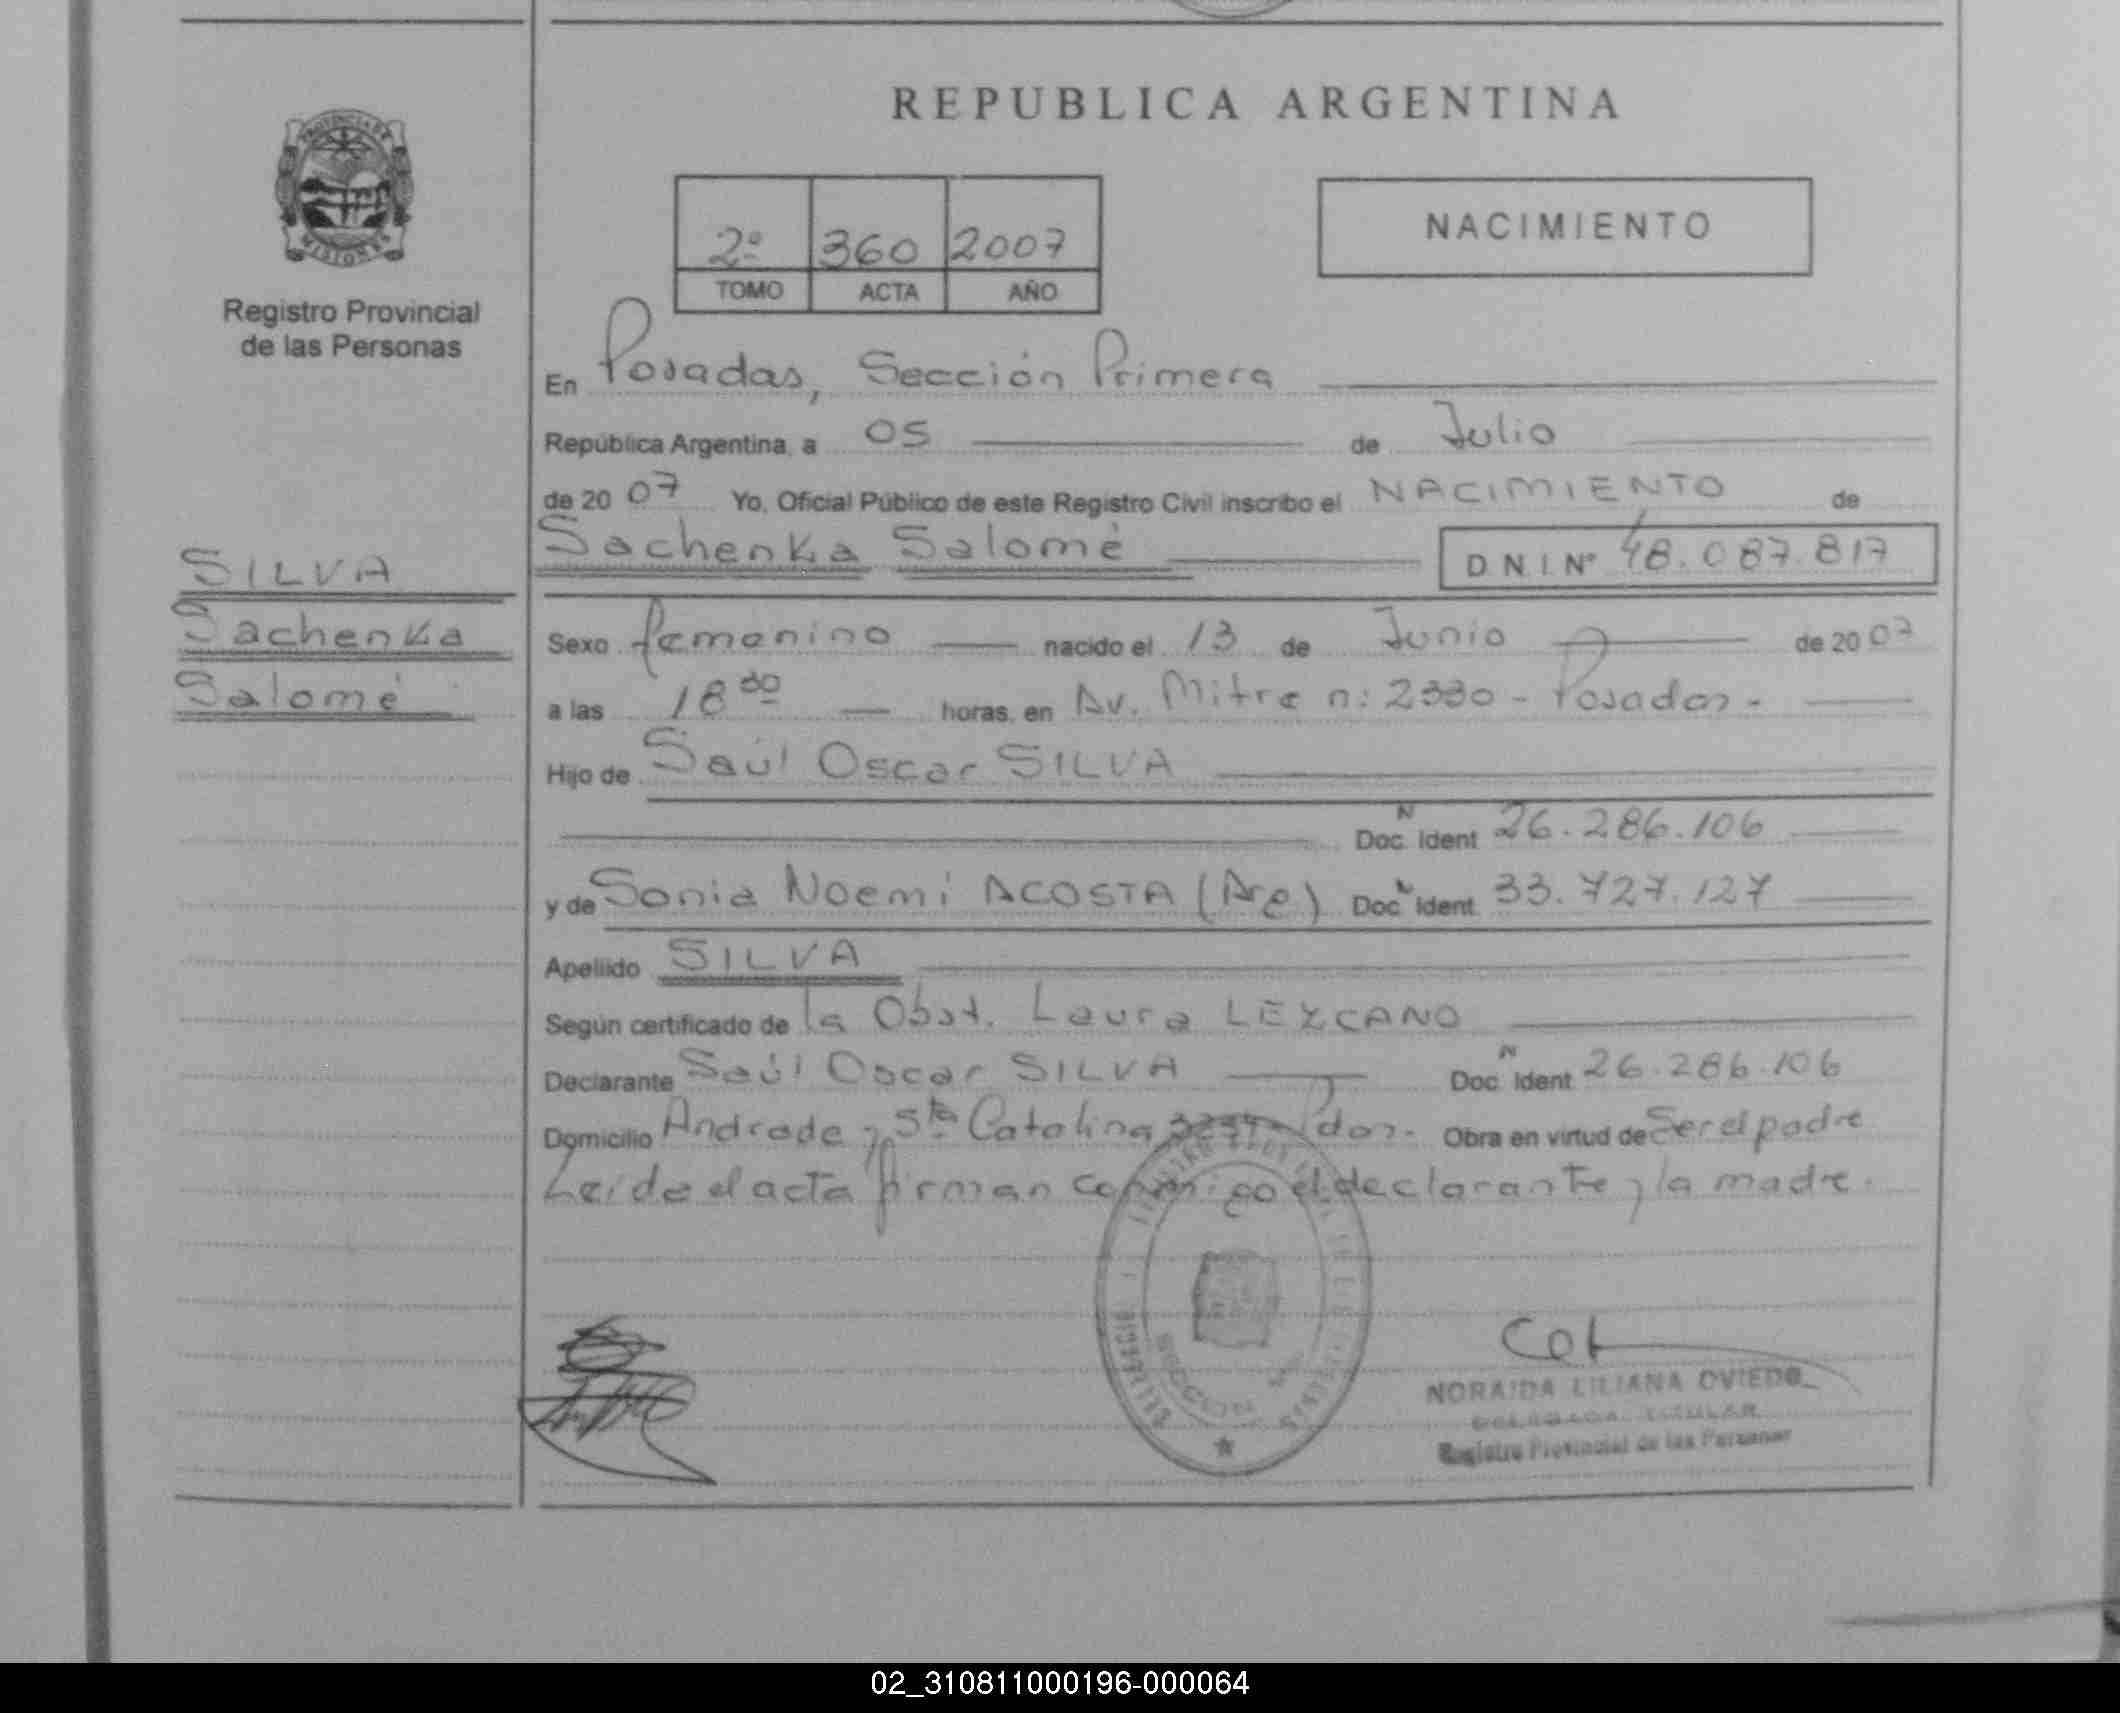 REPUBLICA ARGENTINA
PROVINCIA DE
MISIONES
Registro Provincial
de las Personas
2º 360 2007
TOMO ACTA AÑO
NACIMIENTO
En Posadas, Sección Primera
República Argentina, a 05 de Julio
de 2007 Yo, Oficial Público de este Registro Civil inscribo el NACIMIENTO de
Sachenka Salomé D.N.I. Nº 48.087.817
SILVA
Sachenka
Salomé
Sexo femenino nacido el 13 de Junio de 2007
a las 18 30 horas, en Av. Mitre n: 2330 - Posadas.
Hijo de Saúl Oscar SILVA
Doc. N Ident 26.286.106
y de Sonia Noemi ACOSTA (Arg) Doc. N Ident. 33.727.127
Apellido SILVA
Según certificado de la Obst. Laura LEZCANO
Declarante Saúl Oscar SILVA Doc. N Ident 26.286.106
Domicilio Andrade y Sta Catalina Pdas. Obra en virtud de Ser el padre
Leída el acta firman conmigo el declarante y la madre.
NORAIDA LILIANA OVIEDO
DELEGADA TITULAR
Registro Provincial de las Personas
02_310811000196-000064